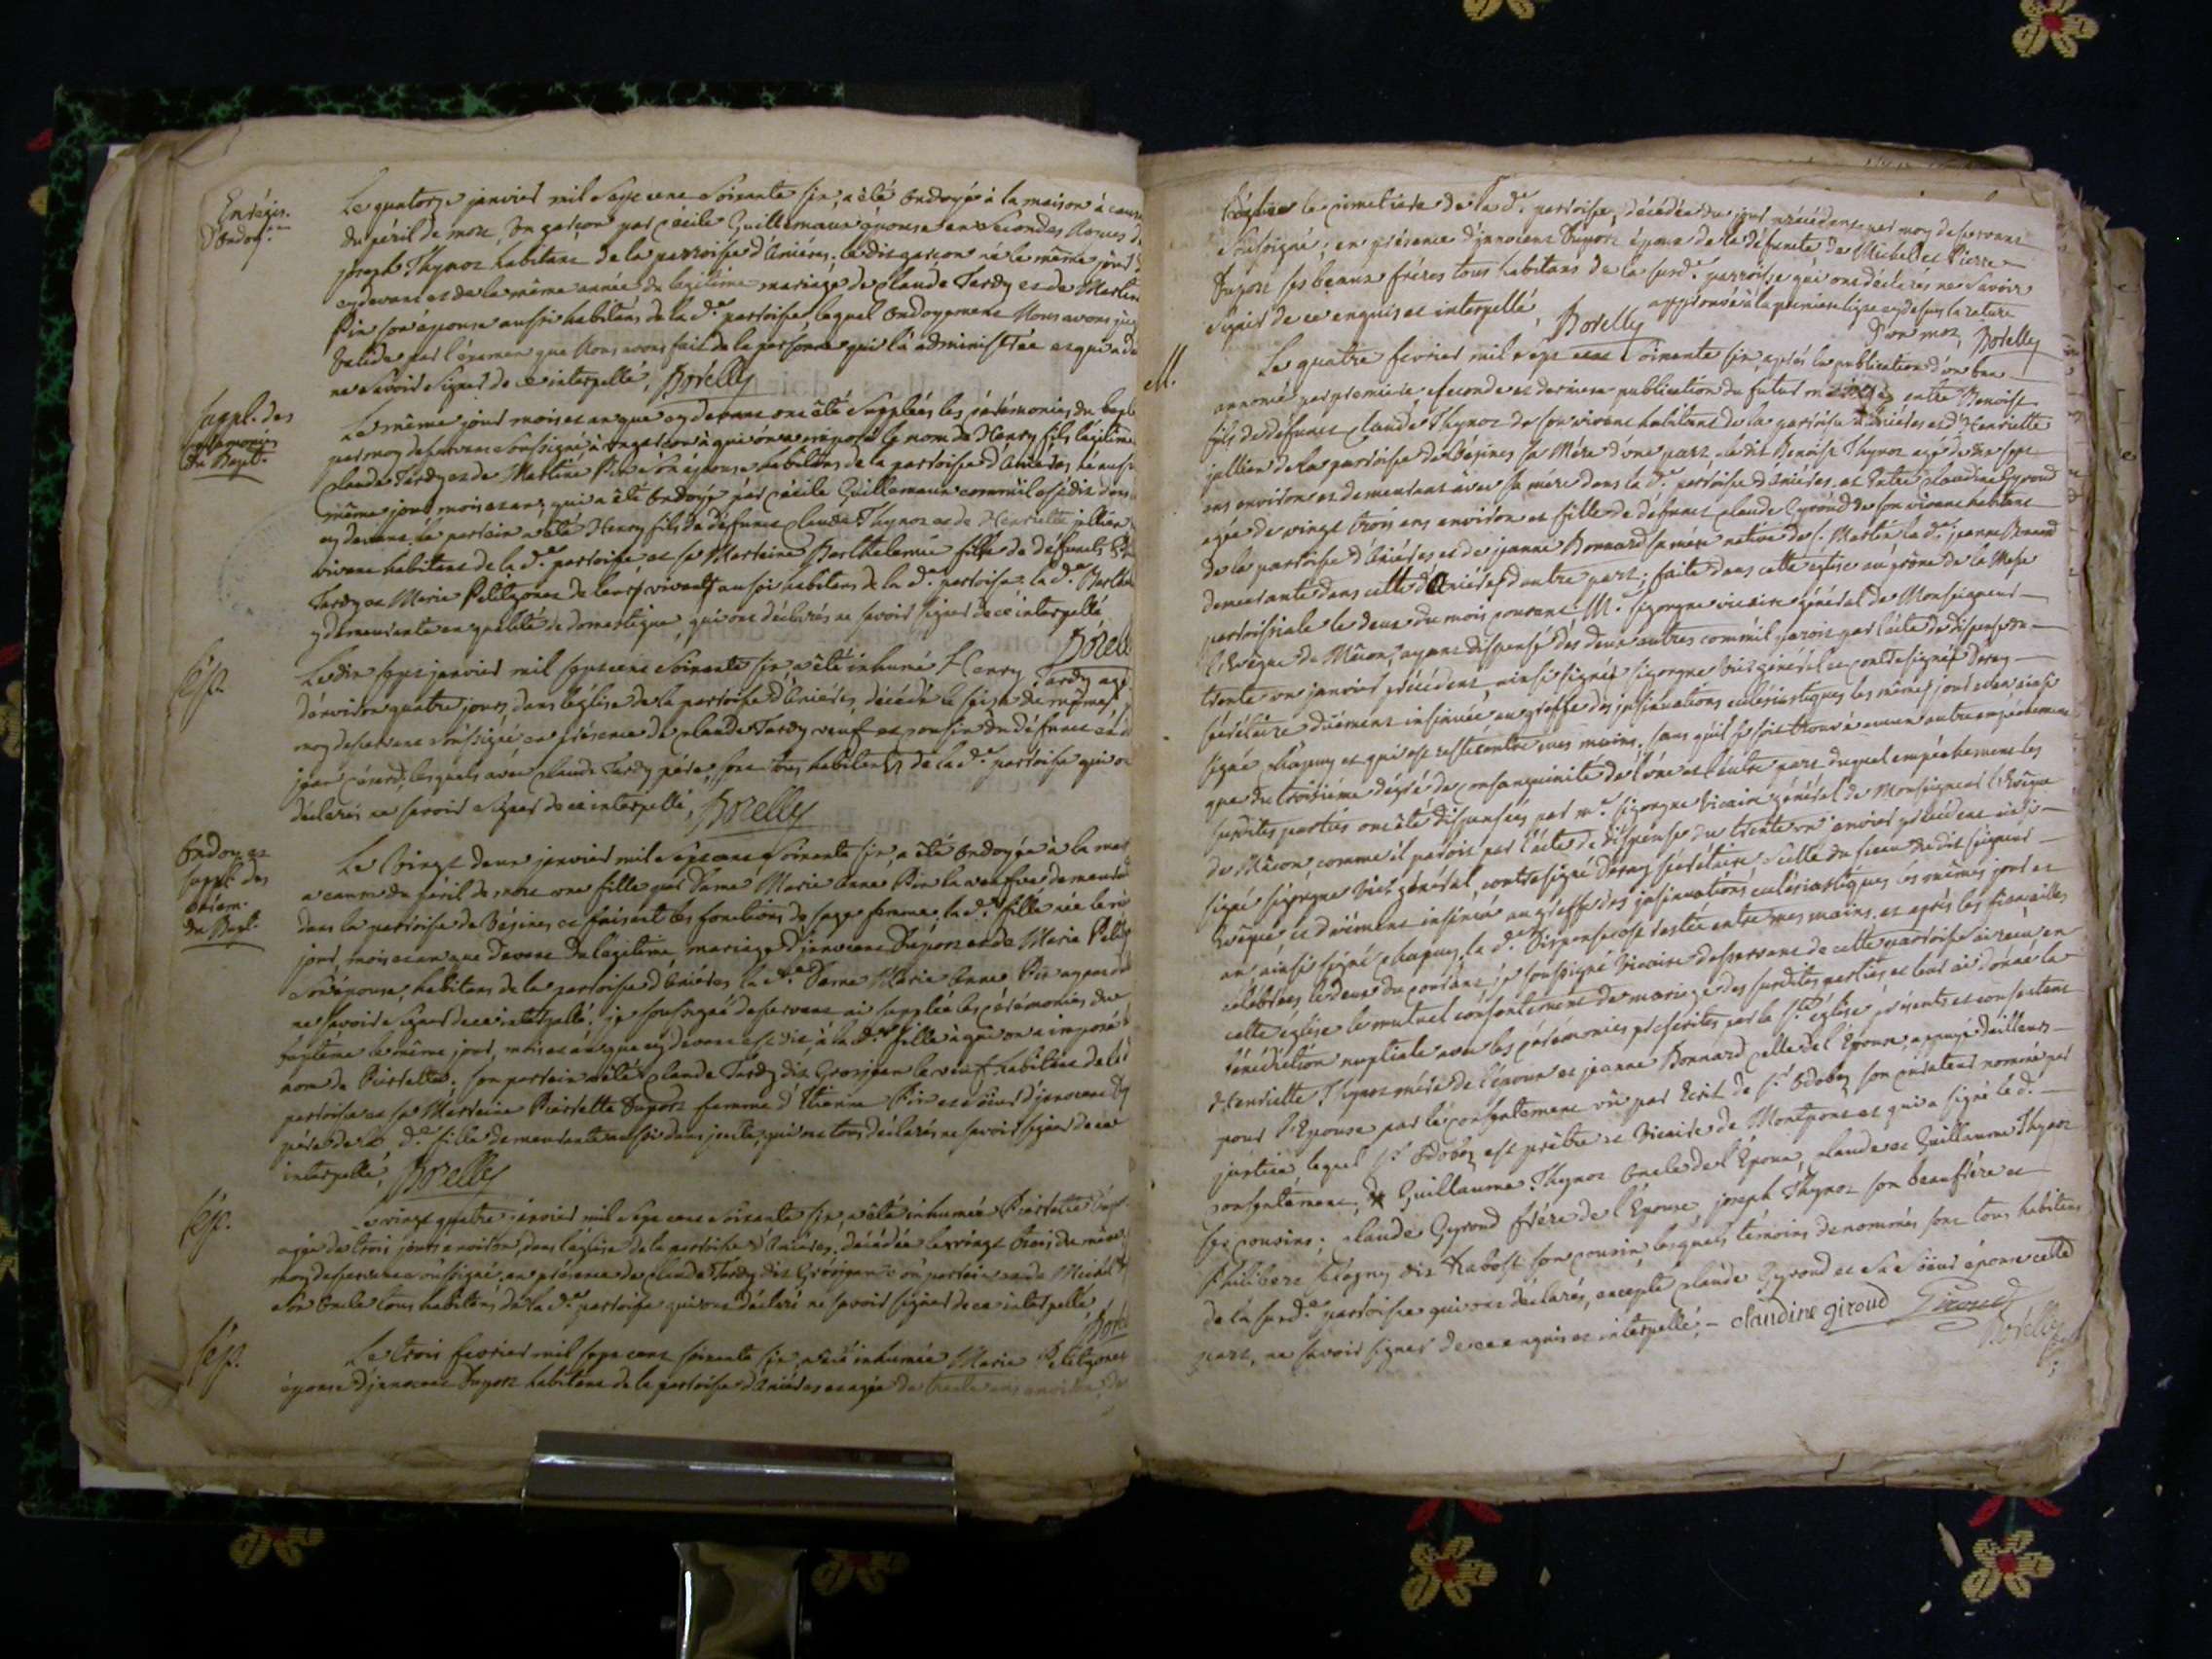 Enrégis.
d'ondoy.en
Le quatorze janvier mil Sept cent Soixante six, a été ondoyé à la maison à cause
du péril de mort, un garçon par Cécile Guillemaux épouse en secondes Noces de
joseph Thynoz habitant de la parroisse d'Aniéres. le dit garçon né le même jour
cy devant et de la même année du légitime mariage de Claude Tardy et de Martine
Pin son épouse aussi habitans de la de. parroisse, lequel ondoyement Nous avons jugé
valide par l'éxamen que Nous avons fait de la personne qui l'a administrée et qui a dé
ne savoir signer de ce interpellé, Borelly
Suppl. des
cérémonies
du Bapt.
Le même jour mois et an que cy devant ont été suppléés les cérémonies du bapt
par moy desservant soussigné, à un garçon à qui on a imposé le nom de Henry fils légitime
Claude Tardy et de Martine Pin son épouse habitans de la parroisse d'Aniéres né aussi
même jour mois et an, qui a été ondoyé par Cécile Guillemaux comm'il est dit dans
cy devant. le parrein a été Henry fils de défunct Claude Thynoz et de Henriette jullien
vivant habitant de la de. parroisse, et sa Marreine Barthelemie fille de défuncts
Tardy et Marie Petitzonet de leurs vivants aussi habitans de la de. parroisse la de. Barthe
y demeurante en qualité de domestique, qui ont déclarés ne savoir signer de ce interpellé
Borell
Sép.
Le dix sept janvier mil sept cent soixante six a été inhumé Henry Tardy agé
d'environ quatre jours, dans l'église de la parroisse d'Aniéres, décédé le seize du même
moy desservant soussigné, en présence de Claude Tardy veuf et cousin du défunct et de
jean Cérard, lesquels avec Claude Tardy pére, sont tous habitans de la de. parroisse qui on
déclarés ne savoir signer de ce interpellé, Borelly
Ondoy. et
suppl. des
cérém.
du Bapt.
Le vingt deux janvier mil sept cent soixante six, a été ondoyée à la mai
a cause du péril de mort une fille par Dame Marie Anne Pin la veufve demeurant
dans la parroisse de Bésines et faisant les fonctions de sage femme, la de. fille née le m
jour, mois et an que devant du légitime mariage d'jnnocent Duport et de Marie Petitz
son épouse, habitans de la parroisse d'Aniéres, la de. Dame Marie Anne Pin ayant dé
ne savoir signer de ce interpellé; je soussigné desservant ai supplée les cérémonies du
baptême le même jour, mois et an que cy devant est dit, à la de. fille à qui on a imposé
nom de Pierrette; son parrein a été Claude Tardy dit Grosjean le veuf habitant de la d
parroisse et sa Marreine Pierrette Duport femme d'Etienne Pin et sœur d'jnnocent Dup
pére de la de. fille demeurante aussi dans icelle, qui ont tous déclarés ne savoir signer de ce
interpellé, Borelly
Sép.
Le vingt quatre janvier mil sept cent soixante six, a été inhumée Pierrette Dup
agée de trois jours environ, dans l'église de la parroisse d'Aniéres, décédée le vingt trois du même
moy desservant soussigné, en présence de Claude Tardy dit Grosjean son parrein et de Michel D
son oncle tous habitans de la de. parroisse qui ont déclaré ne savoir signer de ce interpellé,
Bore
Sép.
Le trois fevrier mil sept cent soixante six, a été inhumée Marie Petitzonet
épouse d'jnnocent Duport habitant de la parroisse d'Aniéres et agée de trente ans environ, da
le cimetiere de la de. parroisse, décédée du jour précédent, par moy desservant
soussigné; en présence d'jnnocent Duport époux de la défunte, de Michel et Pierre
Duport ses beaux fréres tous habitans de la susde. parroisse qui ont déclarés ne savoir
signer de ce enquis et interpellé, Borelly approuvé à la premiere ligne cy dessus la rature
d'un mot, Borelly
M.
Le quatre fevrier mil sept cent soixante six, après la publication d'un ban
annoncé par premiere, seconde et derniere publication du futur mariage entre Benoist
fils de défunct Claude Thynoz de son vivant habitant de la parroisse d'Aniéres et d'Henriette
jullien de la parroisse de Bésines sa Mére d'une part, le dit Benoist Thynoz agé de dix sept
ans environ et demeurant avec sa mére dans la de. parroisse d'Aniéres, et Entre Claudine Gyroud
agée de vingt trois ans environ et fille de défunct Claude Gyroud de son vivant habitant
de la parroisse d'Aniéres et de jeanne Bonnard sa mére native de St. Martin la de. jeanne Bonnard
demeurante dans cette d'Aniéres d'autre part; faite dans cette église au prône de la Messe
parroissiale le deux du mois courant. Mr. Sigorgne vicaire général de Monseigneur
l'Evêque de Mâcon, ayant dispensé des deux autres comm'il paroit par l'acte de dispense du
trente un janvier précédent, ainsi signé, Sigorgne vic. général et contresigné Derey
sécrétaire duëment insinuée au greffe des insinuations ecclésiastiques les mêmes jour et an ainsi
signé Chapuy et qui est restée entre mes mains, sans qu'il se soit trouvé aucun autre empêchement
que du troisiéme dégré de consanguinité de l'une et l'autre part duquel empéchement les
susdites parties ont été dispensées par Mr. Sigorgne Vicaire général de Monseigneur l'Evêque
de Mâcon, comme il paroit par l'acte de dispense du trente un janvier précédent ainsi
signé Sigorgne Vic. général, contresigné Derey sécrétaire scellé du sceau du dit seigneur
Evêque et duëment insinué au greffe des insinuations ecclésiastiques les mêmes jour et
an ainsi signé Chapuy, la de. Dispense est restée entre mes mains. et après les fiancailles
célébrées le deux du courant, je soussigné Vicaire desservant de cette parroisse ai reçu en
cette église le mutuel consentement de mariage des susdites parties et leur ai donné la
bénédiction nuptiale avec les cérémonies préscrites par la Ste. église, présents et consentant
Henriette Thynoz mére de l'époux et jeanne Bonnard celle de l'Epouse, appuyé dailleurs
pour l'Epouse par le consentement vû par Ecrit de Sr. Odobez son curateur nommé par
justice lequel Sr. Odobez est prêtre et Vicaire de Montpont et qui a signé le d.
consentement, de Guillaume Thynoz oncle de l'Epoux, Claude et Guillaume Thynoz
ses cousins; Claude Gyroud frére de l'Epouse, joseph Thynoz son beaufrére et
Philibert dit Rabost son cousin lesquels témoins denommés sont tous habitans
de la susde. parroisse qui ont déclarés, excepté Claude Gyroud et sa Sœur épouse cette
part, ne savoir signer de ce enquis et interpellé,- claudine giroud Giroud
Borelly